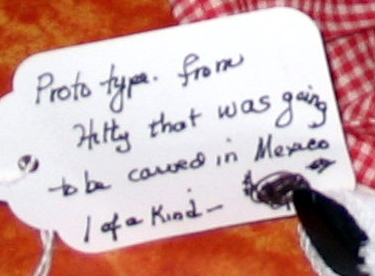 Proto type. from
Hitty that was going
to be carved in Mexico
1 of a Kind-